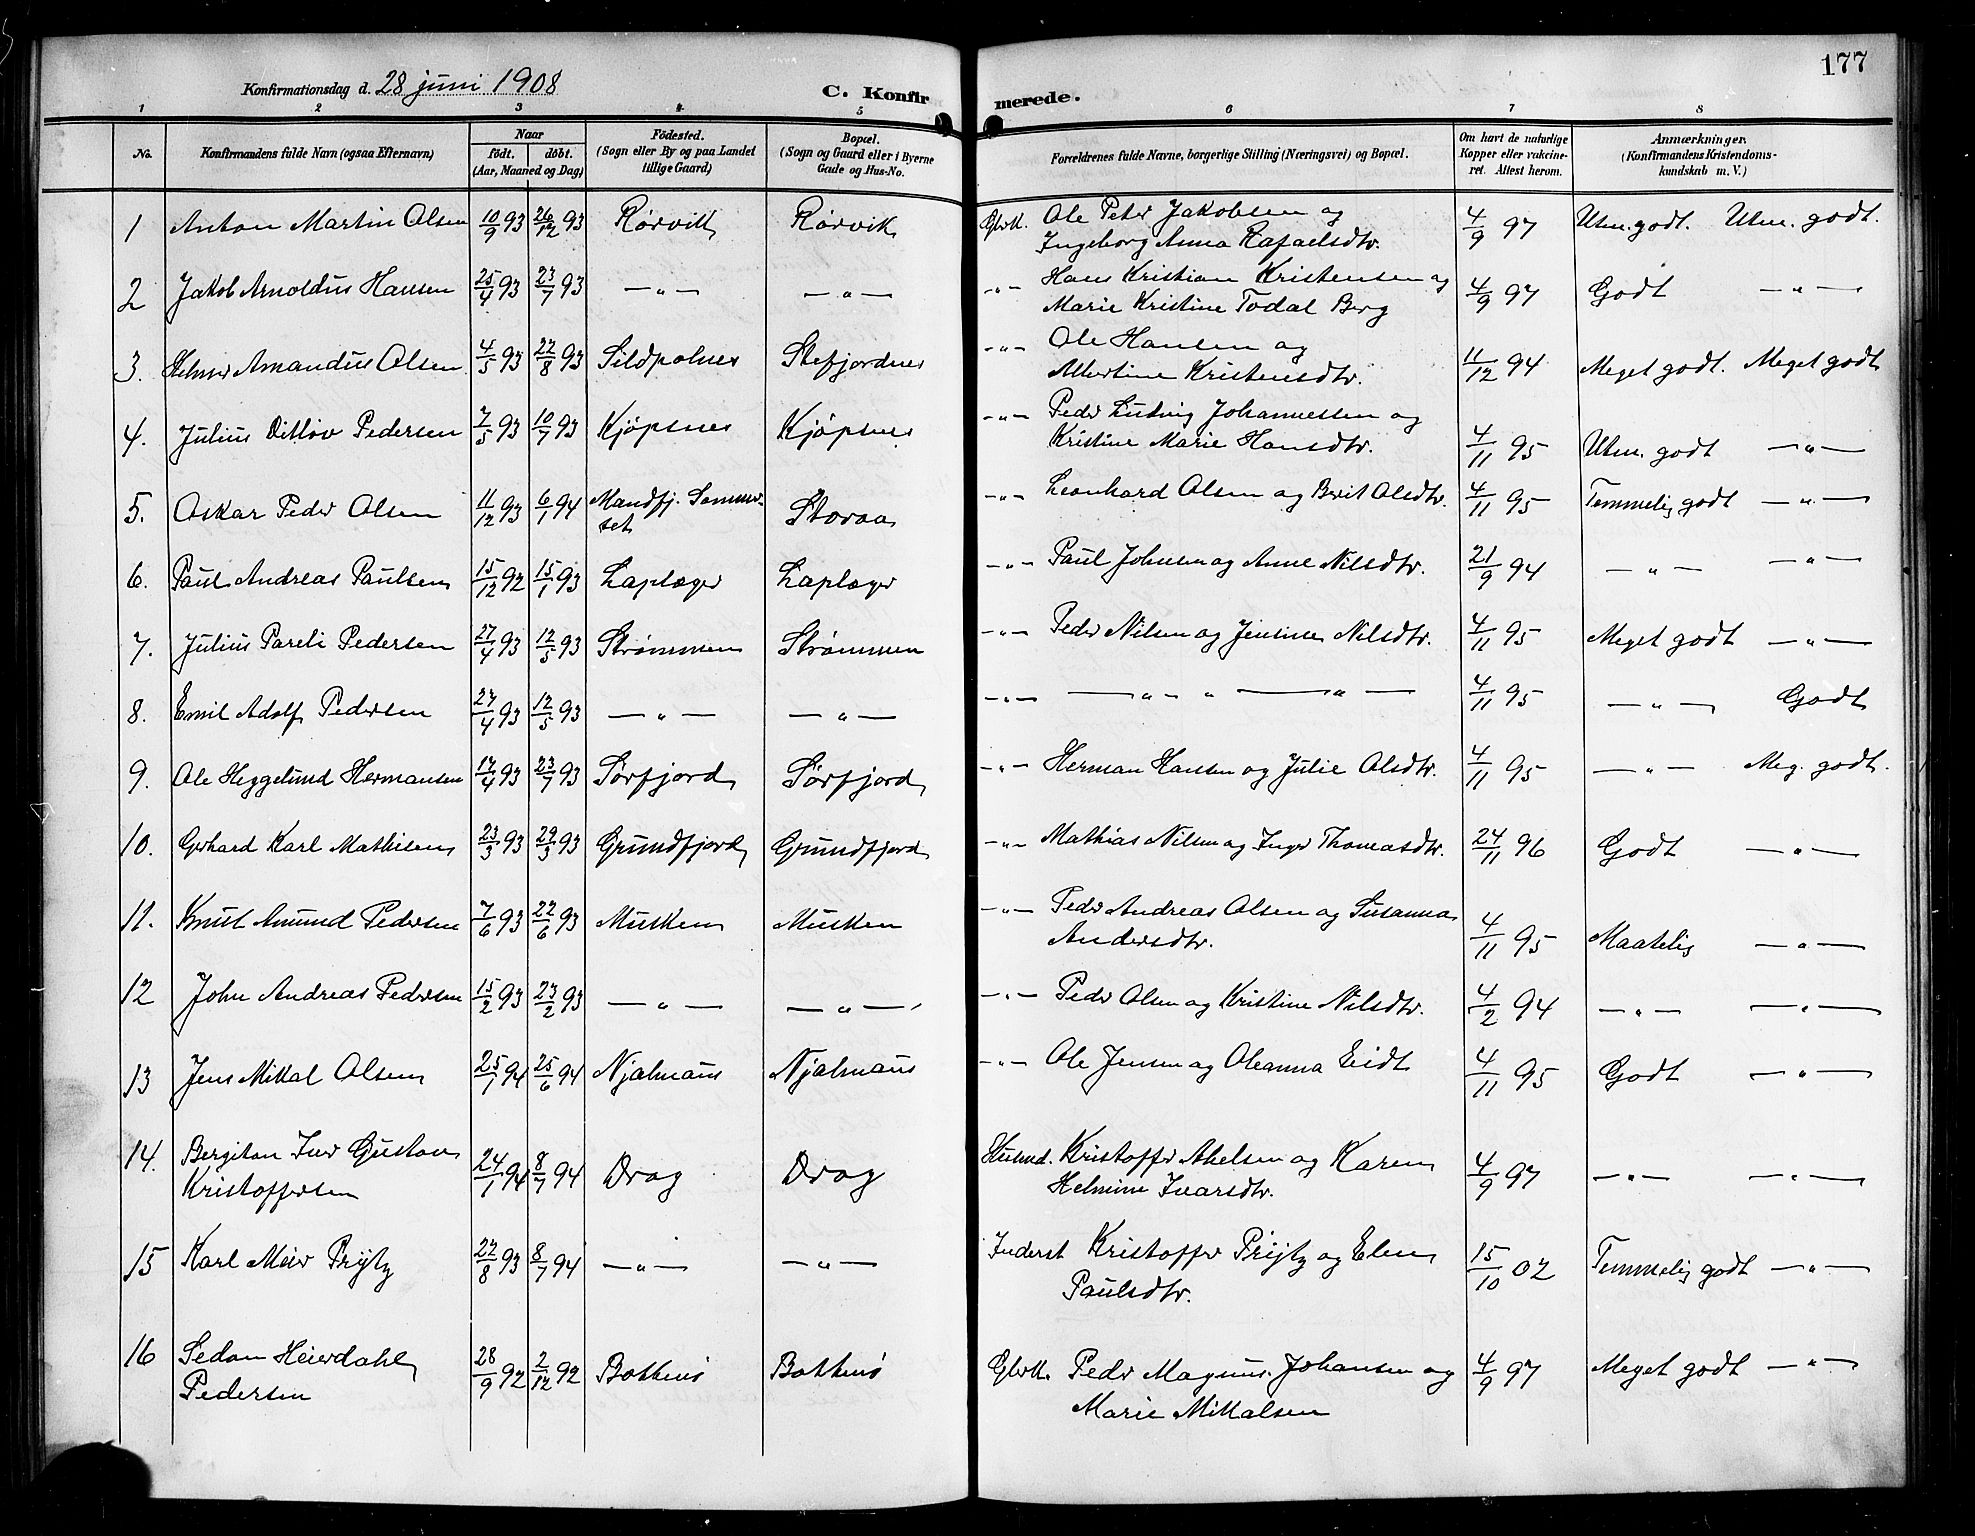 177
Konfirmationsdag d. 28 juni 1908
C. Konfirmerede.
1 2 3 4 5 6 7 8
No.
Konfirmandens fulde Navn (ogsaa Efternavn)
Naar
født. døbt.
(Aar, Maaned og Dag)
Fødested.
(Sogn eller By og paa Landet
tillige Gaard)
Bopæl.
(Sogn og Gaard eller i Byerne
Gade og Hus-No.
Forældrenes fulde Navne, borgerlige Stilling (Næringsvei) og Bopæl.
Om havt de naturlige
Kopper eller vakcine-
ret. Attest herom.
Anmærkninger.
(Konfirmandens Kristendoms-
kundskab m. V.)
1 Anton Martin Olsen 10/9 93 26/12 93 Rørvik Rørvik Gbrk. Ole Peter Jakobsen og
Ingeborg Anna Rafaelsdtr. 4/9 97 Utm. godt. Utm. godt.
2 Jakob Arnoldus Hansen 25/4 93 23/7 93 —"— —"— -"- Hans Kristian Kristensen og
Marie Kristine Todal Berg 4/9 97 Godt —"—
3. Helmer Amandus Olsen 4/5 93 22/8 93 Sildpolnes Stefjordnes -"- Ole Hansen og
Albertine Kristensdtr. 11/12 94 Meget godt. Meget godt
4. Julius Ditløv Pedersen 7/5 93 10/7 93 Kjøpsnes Kjøpsnes -"- Peder Ludvig Johannessen og
Kristine Marie Hansdtr. 4/11 95 Utm. godt —"—
5. Oskar Peder Olsen 11/12 93 6/1 94 Mandfj. Sommer-
set Storaa -"- Leonhard Olsen og Berit Olsdtr. 4/11 95 Temmelig godt —"—
6. Paul Andreas Paulsen 15/12 92 15/1 93 Laplæger Laplæger -"- Paul Johnsen og Anne Nilsdtr. 21/9 94 —"— —"—
7. Julius Pareli Pedersen 27/4 93 12/5 93 Strømmen Strømmen -"- Peder Nilsen og Jensine Nilsdtr. 4/11 95 Meget godt —"—
8. Emil Adolf Pedersen 27/4 93 12/5 93 —"— —"— -"- —"—"—"— 4/11 95 —"— Godt
9. Ole Heggelund Hermansen 17/4 93 23/7 93 Sørfjord Sørfjord -"- Herman Hansen og Julie Olsdtr. 4/11 95 —"— Meg. godt.
10. Gerhard Karl Mathisen 23/3 93 29/3 93 Grundfjord Grundfjord -"- Mathias Nilsen og Inger Thomasdtr. 24/11 96 Godt —"—
11. Knut Amund Pedersen 7/6 93 22/6 93 Musken Musken -"- Peder Andreas Olsen og Susanna
Andersdtr. 4/11 95 Maatelig —"—
12 John Andreas Pedersen 15/2 93 23/2 93 —"— —"— -"- Peder Olsen og Kristine Nilsdtr. 4/2 94 —"— —"—
13 Jens Mikal Olsen 25/1 94 25/6 94 Njalmaus Njalmaus -"- Ole Jensen og Oleanna Eidt 4/11 95 Godt —"—
14. Bergiton Iver Gustav
Kristoffersen 24/1 94 8/7 94 Drag Drag Husmd. Kristoffer Akelsen og Karen
Helmine Ivarsdtr. 4/9 97 —"— —"—
15 Karl Meier Prijtz 27/8 93 8/7 94 —"— —"— Inderst Kristoffer Prijtz og Elen
Paulsdtr. 15/10 02 Temmelig godt —"—
16 Sedan Heierdahl
Pedersen 28/9 92 2/12 92 Botnes Botnes Gbrk. Peder Magnus Johansen og
Marie Mikalsen 4/9 97 Meget godt —"—